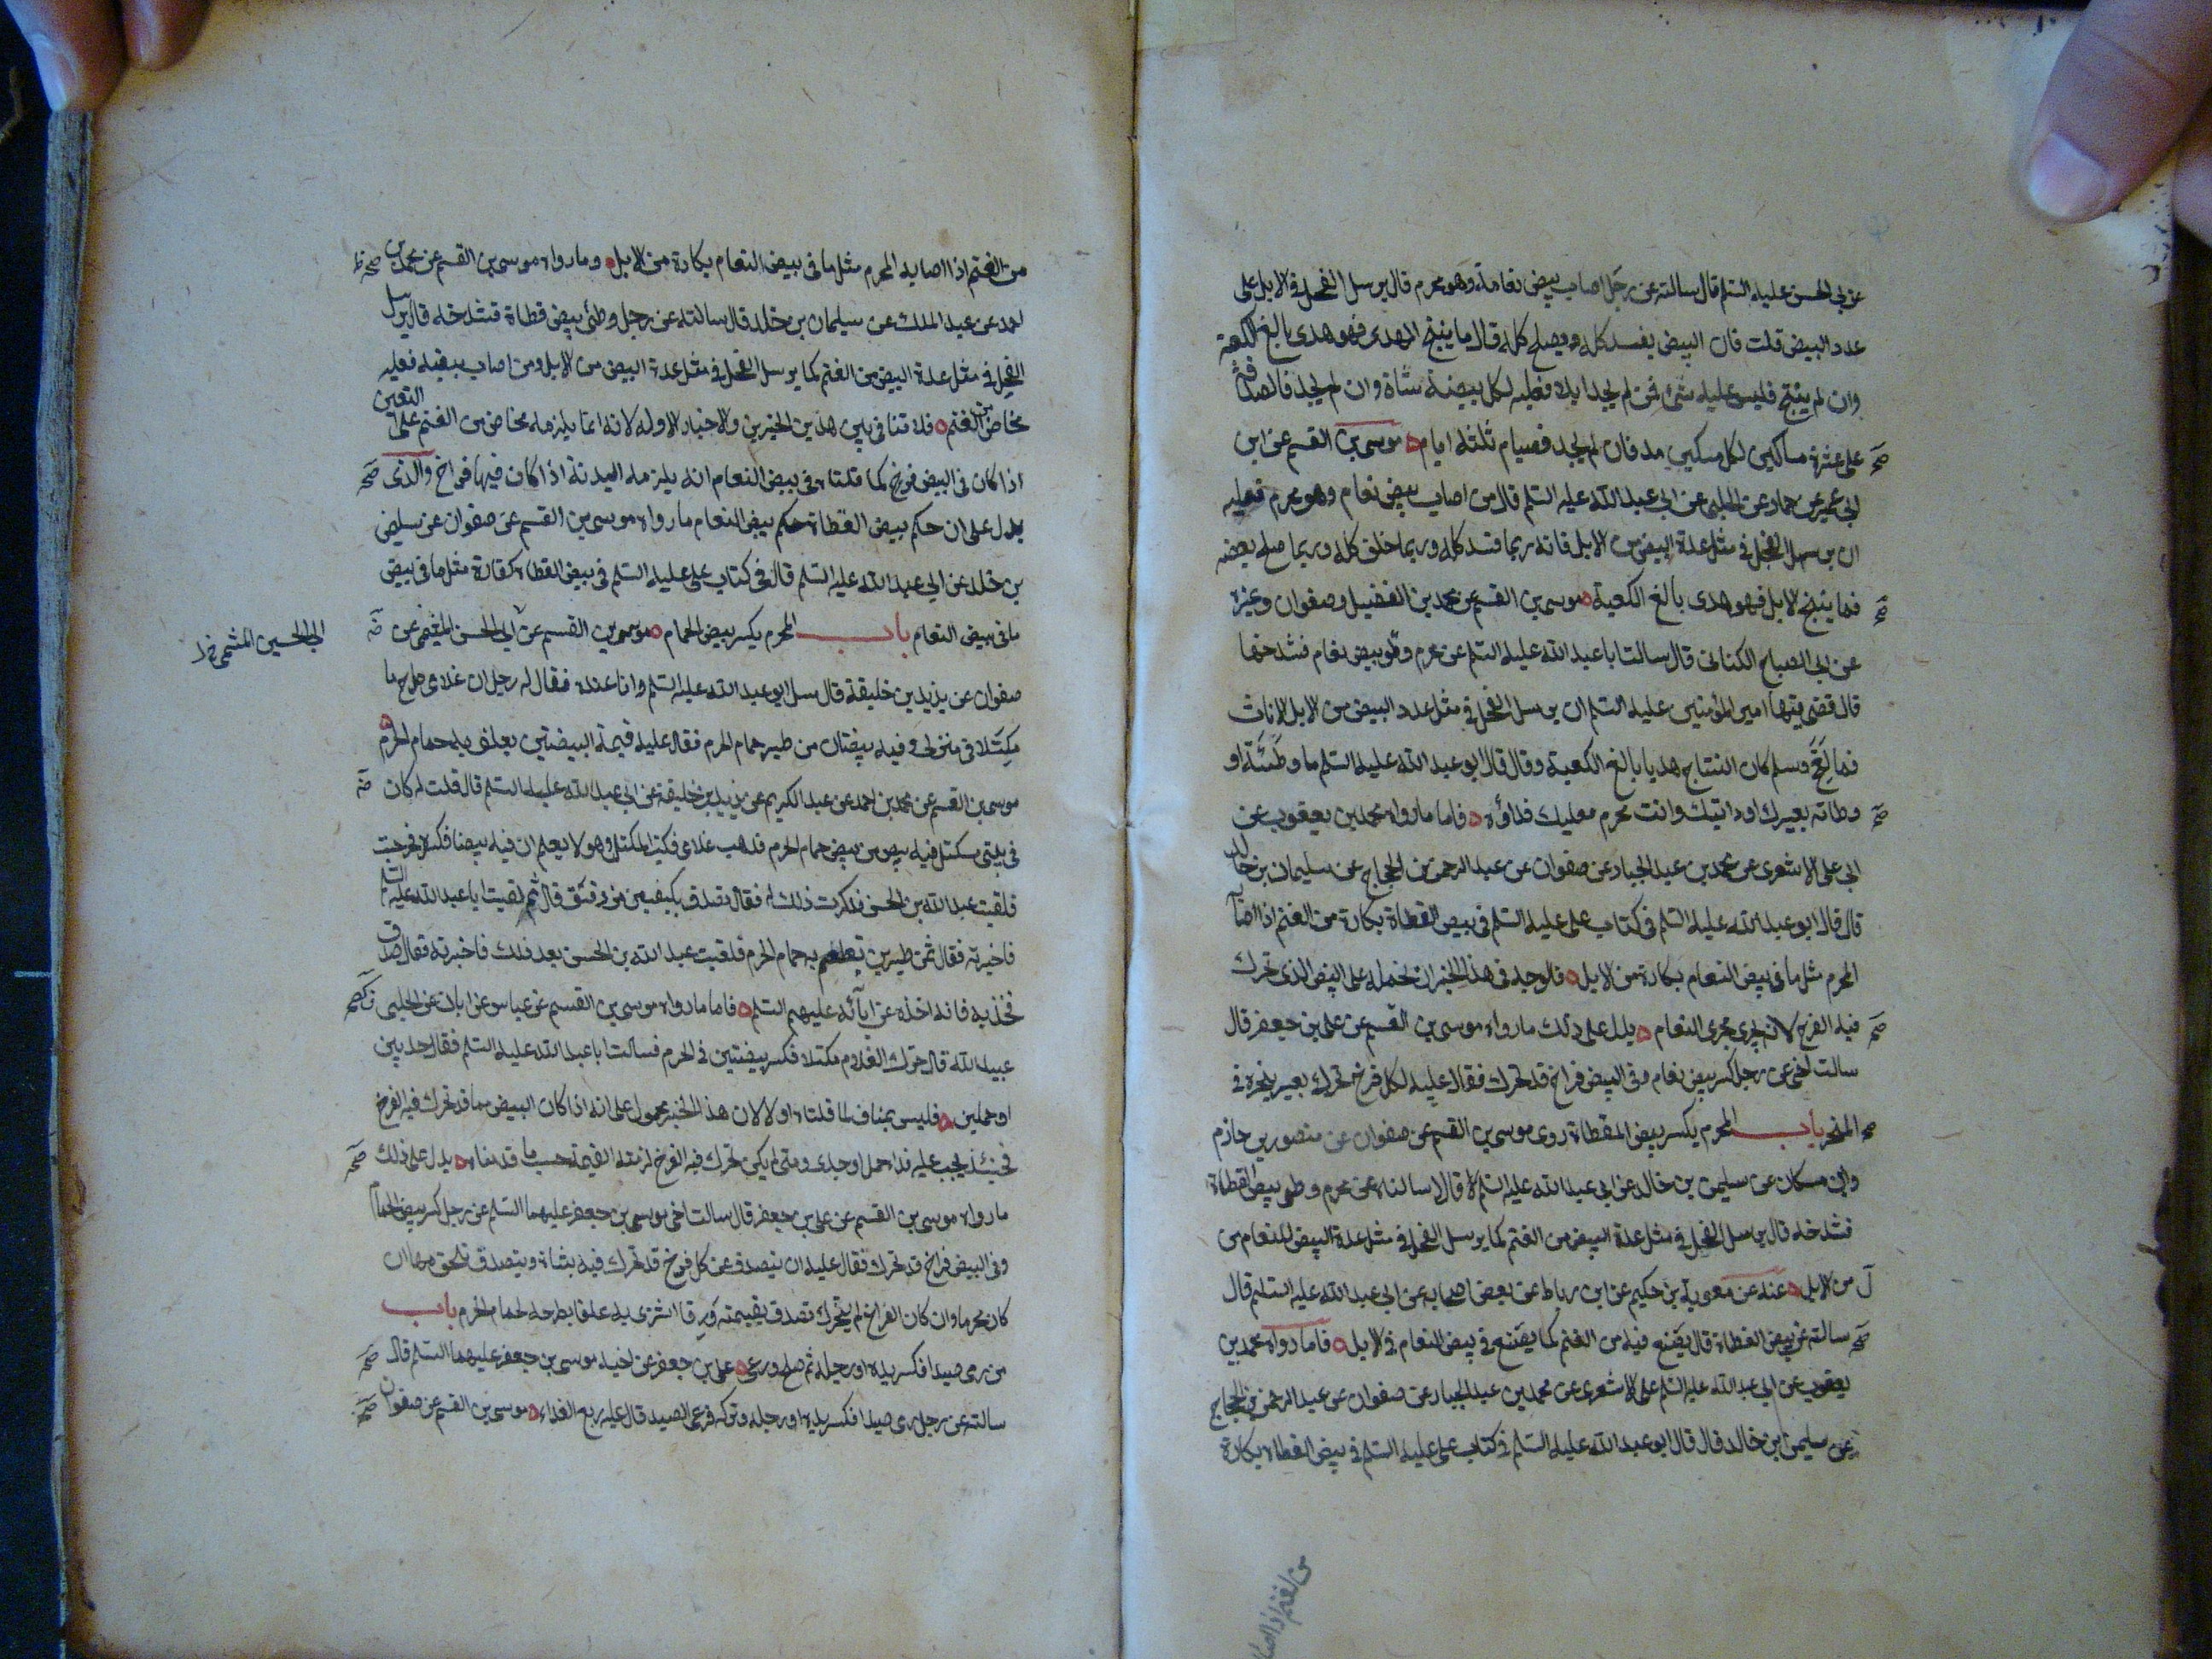 عن ابى الحسن عليه السلم قال سالته عن رجل اصاب بيض نعامة وهو محرم قال يرسل الفحل فى الابل على
عدد البيض قلت فان البيض يفسد كله ويصلح كله قال ما ينتج الهدى فهو هدى بالغ الكعبة
وان لم ينتج فليس عليه شئ فمن لم يجد ابلا فعليه لكل بيضة شاة وان لم يجد فالصدقة
على عشرة مساكين لكل مسكين مد فان لم يجد فصيام ثلثة ايام موسى بن القسم عن ابن
ابى عمير عن حماد عن الحلبى عن ابى عبد الله عليه السلم قال من اصاب بيض نعام وهو محرم فعليه
ان يرسل الفحل فى مثل عدة البيض من الابل فانه ربما فسد كله وربما خلق كله وربما صلح بعضه
فما ينتج الابل فهو هدى بالغ الكعبة موسى بن القسم عن محمد بن الفضيل وصفوان وغيره
عن ابى الصباح الكنانى قال سالت ابا عبد الله عليه السلم عن محرم وطئ بيض نعام فشدخها
قال قضى فيها امير المؤمنين عليه السلم ان يرسل الفحل فى مثل عدد البيض من الابل الاناث
فما لقح وسلم كان النتاج هديا بالغ الكعبة وقال قال ابو عبد الله عليه السلم ما وطئته او
وطاته بعيرك او دابتك وانت محرم فعليك فداؤه فاما ما رواه محمد بن يعقوب عن
ابى على الاشعرى عن محمد بن عبد الجبار عن صفوان عن عبد الرحمن بن الحجاج عن سليمان بن خالد
قال قال ابو عبد الله عليه السلم فى كتاب على عليه السلم فى بيض القطاة بكارة من الغنم اذا اصابه
المحرم مثل ما فى بيض النعام بكارة من الابل فالوجه فى هذا الخبر ان نحمله على البيض الذى تحرك
فيه الفرخ لانه يجرى مجرى النعام يدل على ذلك ما رواه موسى بن القسم عن على بن جعفر قال
سالت اخى عن رجل كسر بيض نعام وفى البيض فراخ قد تحرك فقال عليه لكل فرخ تحرك بعير ينحره فى
المنحر باب المحرم يكسر بيض القطاة روى موسى بن القسم عن صفوان عن منصور بن حازم
وابن مسكان عن سليمن بن خالد عن ابى عبد الله عليه السلم قالا سالناه عن محرم وطى بيض القطاة
فشدخه قال يرسل الفحل فى مثل عدة البيض من الغنم كما يرسل الفحل فى مثل عدة البيض للنعام من
من الابل عنه عن معوية بن حكيم عن ابن رباط عن بعض اصحابه عن ابى عبد الله عليه السلم قال
سالته عن بيض القطاة قال يصنع فيه من الغنم كما يصنع فى بيض النعام فى الابل فاما ما رواه محمد بن
يعقوب عن ابى عبد الله عليه السلم على الاشعرى عن محمد بن عبد الجبار عن صفوان عن عبد الرحمن بن الحجاج
عن سليمن بن خالد قال قال ابو عبد الله عليه السلم فى كتاب على عليه السلم فى بيض القطاة بكارة
من الغنم اذا اصابه
من الغنم اذا اصابه المحرم مثل ما فى بيض النعام بكارة من الابل وما رواه موسى بن القسم عن محمد بن
احمد عن عبد الملك عن سليمان بن خالد قال سالته عن رجل وطئ بيض قطاة فشدخه قال يرسل
الفحل فى مثل عدة البيض من الغنم كما يرسل الفحل فى مثل عدة البيض من الابل ومن اصاب بيضه فعليه
مخاض من الغنم فلا تنافى بين هذين الخبرين والاخبار الاوله لانه انما يلزمه مخاض من الغنم على التعيين
اذا كان فى البيض فرخ كما قلناه فى بيض النعام انه يلزمه البدنة اذا كان فيها فراخ والذى
يدل على ان حكم بيض القطاة حكم بيض النعام ما رواه موسى بن القسم عن صفوان عن سليمن
بن خلد عن ابى عبد الله عليه السلم قال فى كتاب على عليه السلم فى بيض القطاة كفارة مثل ما فى بيض
ما فى بيض النعام باب المحرم يكسر بيض الحمام موسى بن القسم عن ابى الحسن عن
صفوان عن يزيد بن خليفة قال سل ابو عبد الله عليه السلم وانا عنده فقال له رجل ان غلامى طرح ما
مكتلا فى منزلى وفيه بيضتان من طير حمام الحرم فقال عليه قيمة البيضتين يعلف به حمام الحرم
موسى بن القسم عن محمد بن احمد عن عبد الكريم عن يزيد بن خليفة عن ابى عبد الله عليه السلم قال قلت له كان
فى بيتى مكتل فيه بيض من بيض حمام الحرم فذهب غلامى فكب المكتل وهو لا يعلم ان فيه بيضا فكسره فخرجت
فلقيت عبد الله بن الحسن فذكرت ذلك له فقال تصدق بكفين من دقيق قال ثم لقيت ابا عبد الله عليه السلم
فاخبرته فقال ثمن طيرين تعلف به حمام الحرم فلقيت عبد الله بن الحسن بعد ذلك فاخبرته فقال صدق
فخذ به فانه اخذه عن ابائه عليهم السلم فاما ما رواه موسى بن القسم عن عباس عن ابان عن الحلبى
عبيد الله قال حرك الغلام مكتلا فكسر بيضتين فى الحرم فسالت ابا عبد الله عليه السلم فقال جديين
او حملين فليس بمناف لما قلناه اولا لان هذا الخبر محمول على انه اذا كان البيض مما قد تحرك فيه الفرخ
فحينئذ يجب عليه فداء حمل او جدى ومتى لم يكن تحرك فيه الفرخ لزمته القيمة حسب ما قدمناه يدل على ذلك
ما رواه موسى بن القسم عن على بن جعفر قال سالت اخى موسى بن جعفر عليهما السلم عن رجل كسر بيض الحمام
وفى البيض فراخ قد تحرك فقال عليه ان يتصدق عن كل فرخ قد تحرك فيه بشاة ويتصدق بلحومها ان
كان محرما وان كان الفراخ لم يتحرك تصدق بقيمته ورقا اشترى به علفا يطرحه لحمام الحرم باب
من رمى صيدا فكسر يده او رجله ثم صلح ورعى على بن جعفر عن اخيه موسى بن جعفر عليهما السلم قال
سالته عن رجل رمى صيدا فكسر يده او رجله وتركه فرعى الصيد قال عليه ربع الفداء موسى بن القسم عن صفوان